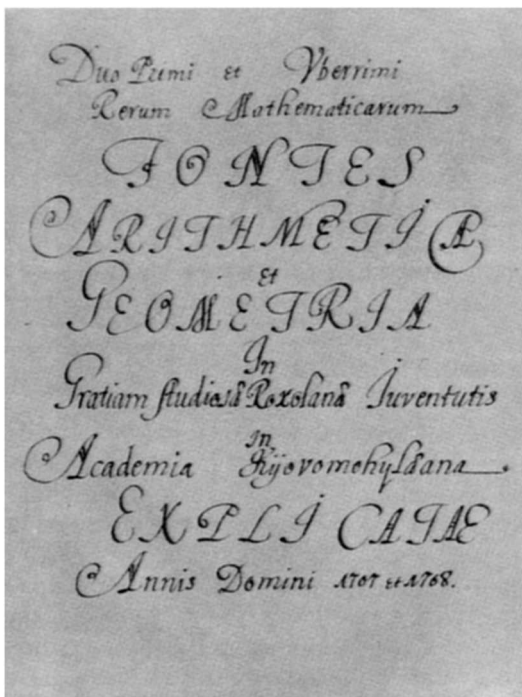 Duo Primi et Vberrimi
Rerum Mathematicarum
FONTES
ARITHMETICÆ
et
GEOMETRIA
In
Gratiam studiosæ Roxolanæ Iuventutis
in
Academia Kijovomohylæana
EXPLICATÆ
Annis Domini 1707 et 1708.